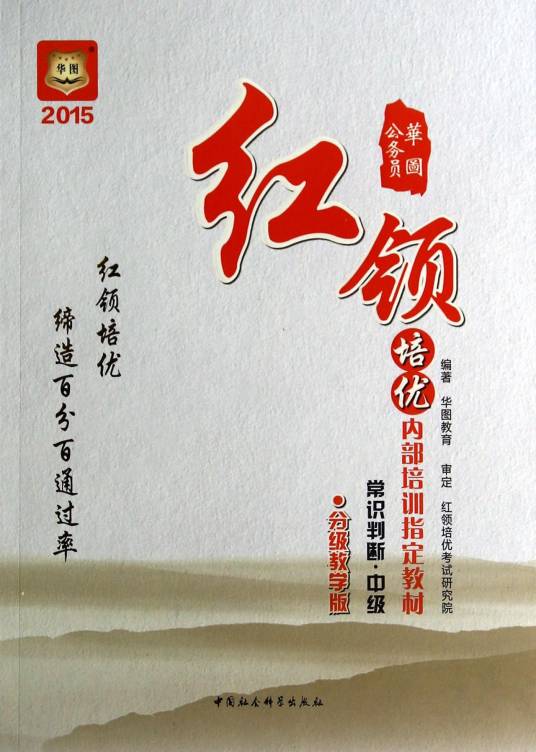 华图
2015
華圖
公务员
红领
培优
内部培训指定教材
常识判断·中级
·分级教学版
编著 华图教育 审定 红领培优考试研究院
红领培优
缔造百分百通过率
中国社会科学出版社